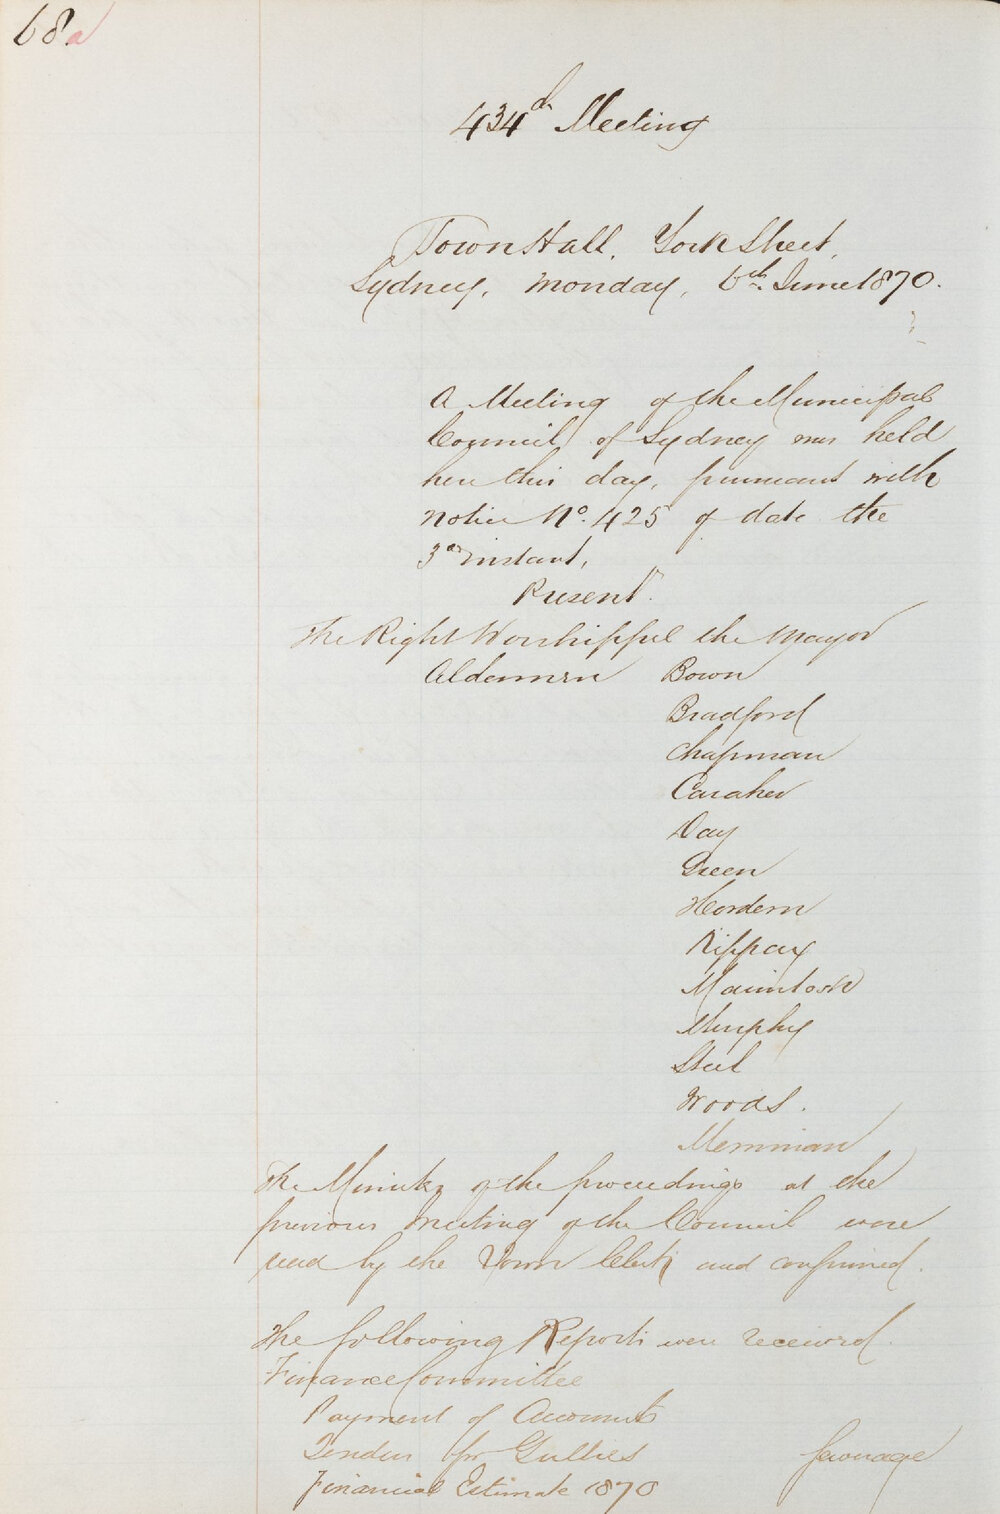 68a
434th Meeting
Town Hall, York Street,
Sydney, Monday, 6th June 1870.
A Meeting of the Municipal
Council of Sydney was held
here this day, pursuant with
notice No. 425 of date the
3rd instant,
Present.
The Right Worshipful the Mayor
Aldermen Bown
Bradford
Chapman
Caraher
Day
Green
Hordern
Kippax
Macintosh
Murphy
Steel
Woods.
Merriman
The Minutes of the proceedings at the
previous Meeting of the Council were
read by the Town Clerk and confirmed.
The following Reports were received
Finance Committee
Payment of Accounts
Tender for Gullies
Financial Estimate 1870
Sewerage